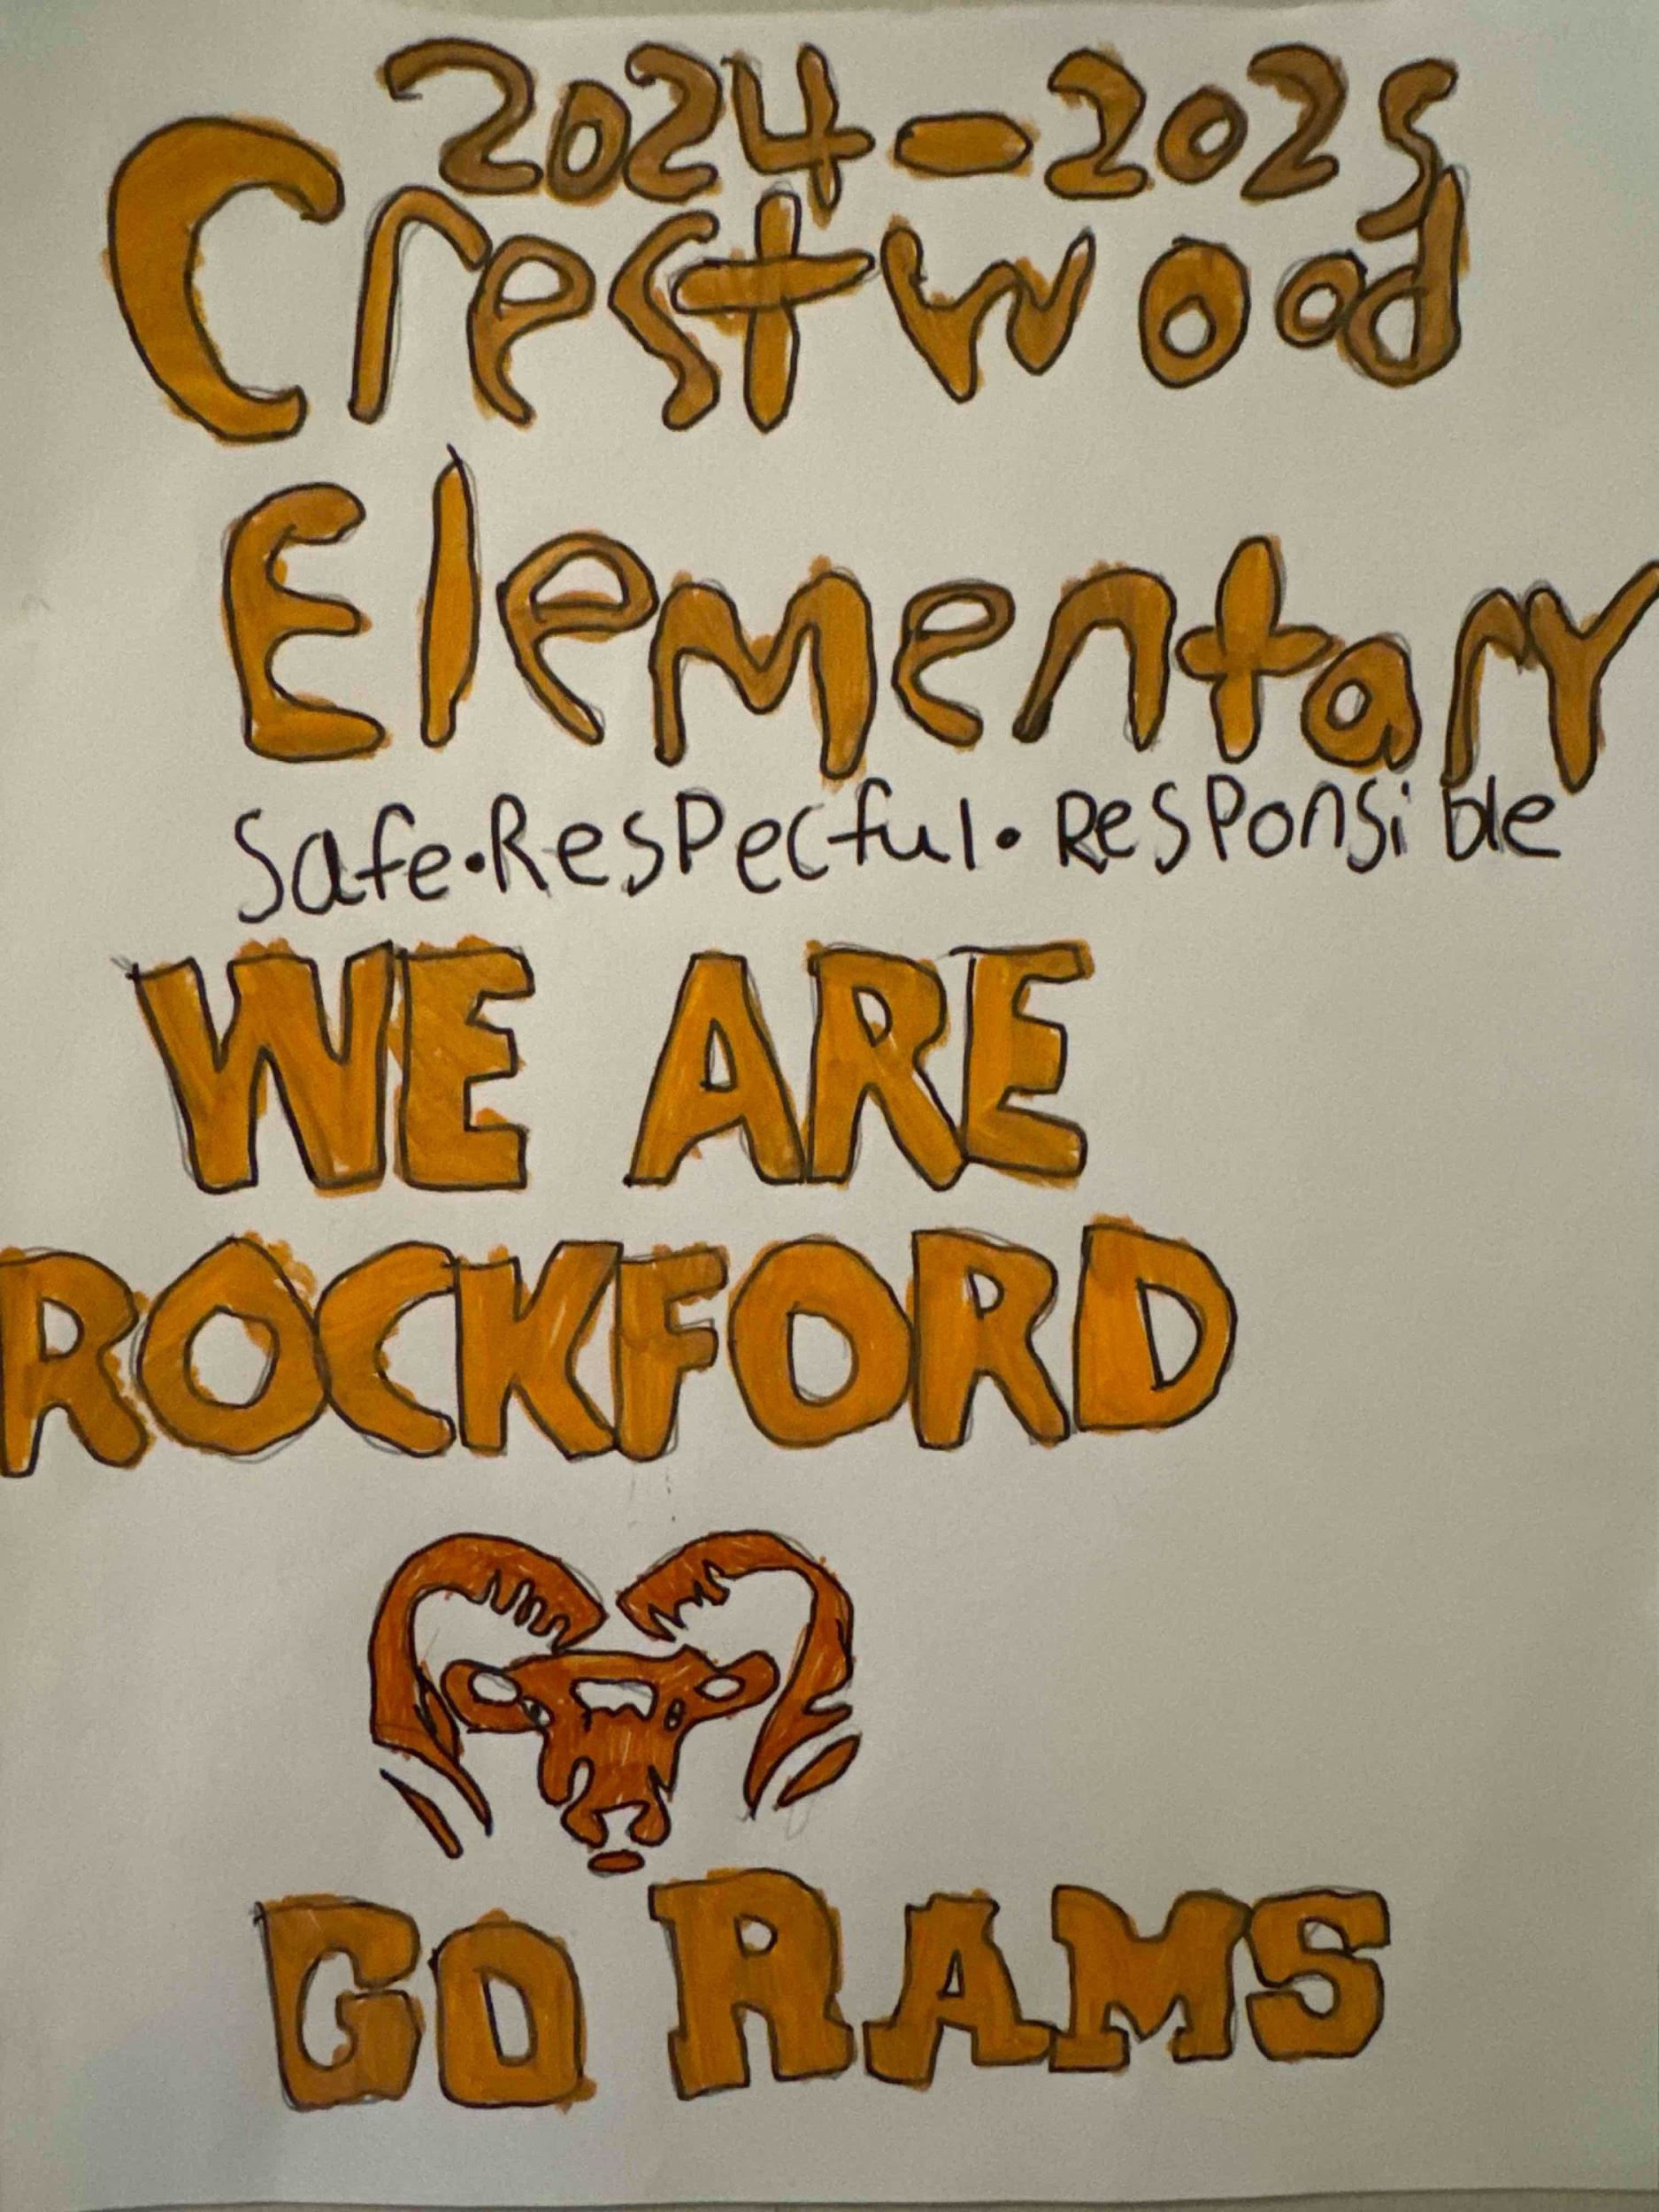 2024-2025
Crestwood
Elementary
Safe•Respectful•Responsible
WE ARE
ROCKFORD
GO RAMS